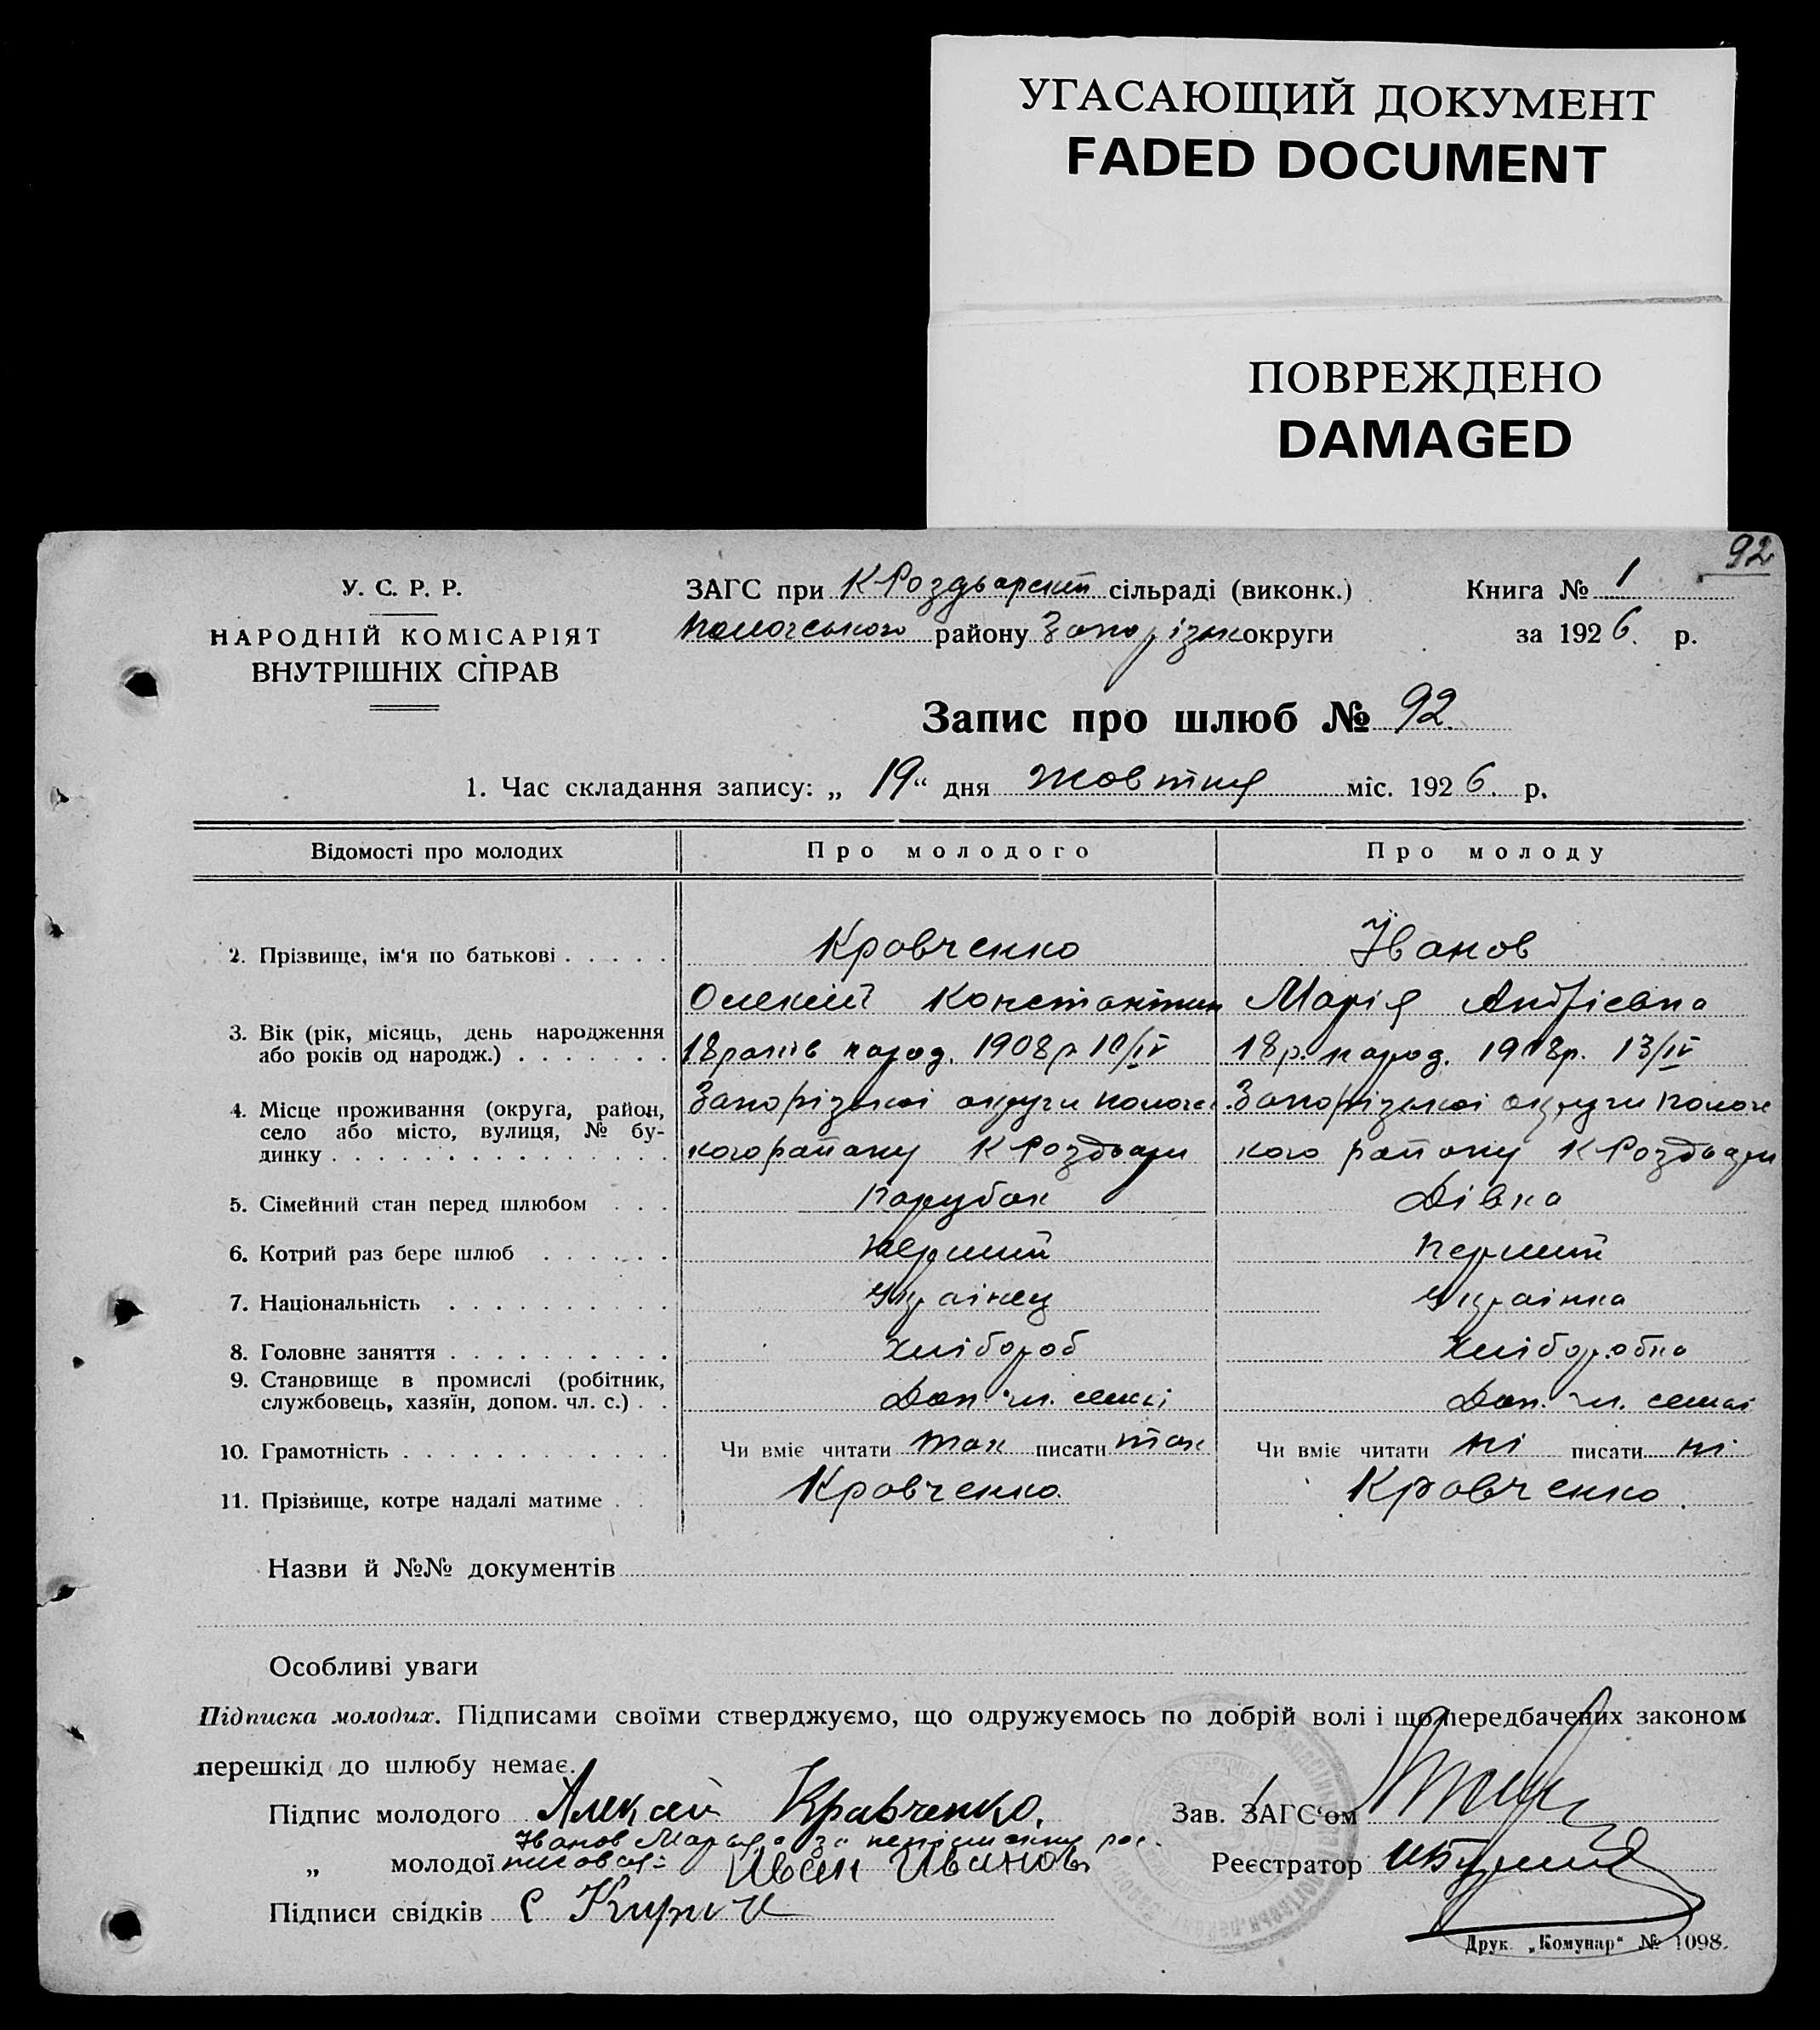 УГАСАЮЩИЙ ДОКУМЕНТ
FADED DOCUMENT
ПОВРЕЖДЕНО
DAMAGED
92
У. С. Р. Р.
НАРОДНІЙ КОМІСАРІЯТ
ВНУТРІШНІХ СПРАВ
ЗАГС при К Роздорский сільраді (виконк.)
Пологського району Запорізьк округи
Книга № 1
за 1926. р.
Запис про шлюб № 92.
1. Час складання запису: „ 19 “ дня жовтня міс. 1926. р.
Відомості про молодих Про молодого Про молоду
2. Прізвище, ім'я по батькові . . . . . Кровченко Іванов
Олексій Константин Марія Андрієвна
3. Вік (рік, місяць, день народження
або років од народж.) . . . . . . . 18 років народ. 1908 р 10/IV 18 р. народ. 1908р. 13/IV
4. Місце проживання (округа, район,
село або місто, вулиця, № бу-
динку . . . . . . . . . . . . . . .
Запорізької округи пологс Запорізької округи пологс
кого району К Роздори кого району К Роздори
5. Сімейний стан перед шлюбом . . . Парубок Дівка
6. Котрий раз бере шлюб . . . . . . Перший Перший
7. Національність . . . . . . . . . . Українец Українка
8. Головне заняття . . . . . . . . . . Хлібороб Хліборобка
9. Становище в промислі (робітник,
службовець, хазяїн, допом. чл. с.) . . Доп чл. семьі Доп. чл. семьі
10. Грамотність . . . . . . . . . . . . Чи вміє читати так писати так Чи вміє читати ні писати ні
11. Прізвище, котре надалі матиме . . Кровченко. Кровченко.
Назви й №№ документів
Особливі уваги
Підписка молодих. Підписами своїми стверджуємо, що одружуємось по добрій волі і що передбачених законом
перешкід до шлюбу немає.
Підпис молодого Алексей Кравченко.
Зав. ЗАГС'ом
Іванов Марья а за неписьменну рос
„ молодої писовся: Иван Иванов
Реєстратор
Підписи свідків С Кирич
Друк. „Комунар“ № 1098.